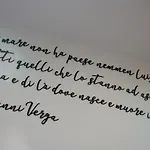 mare non ha paese nemmen lui,
ti quelli che lo stanno ad as
a e di là dove nasce e muore i
nni Verga